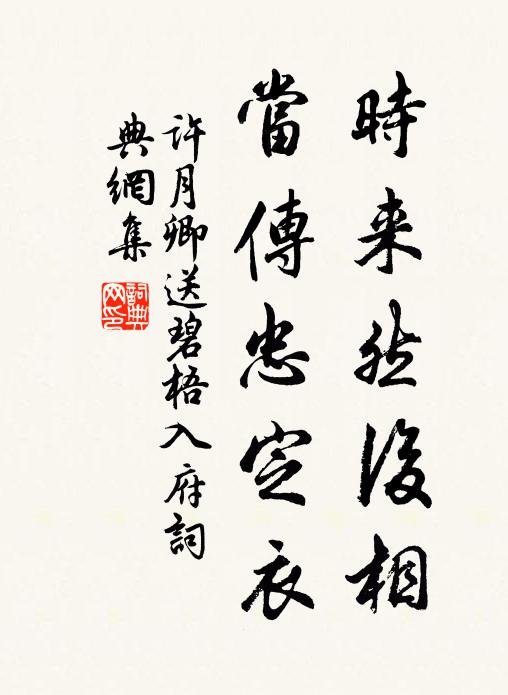 時来然後相
當傳忠定衣
許月卿送碧梧入府詞
典網集
詞典網印